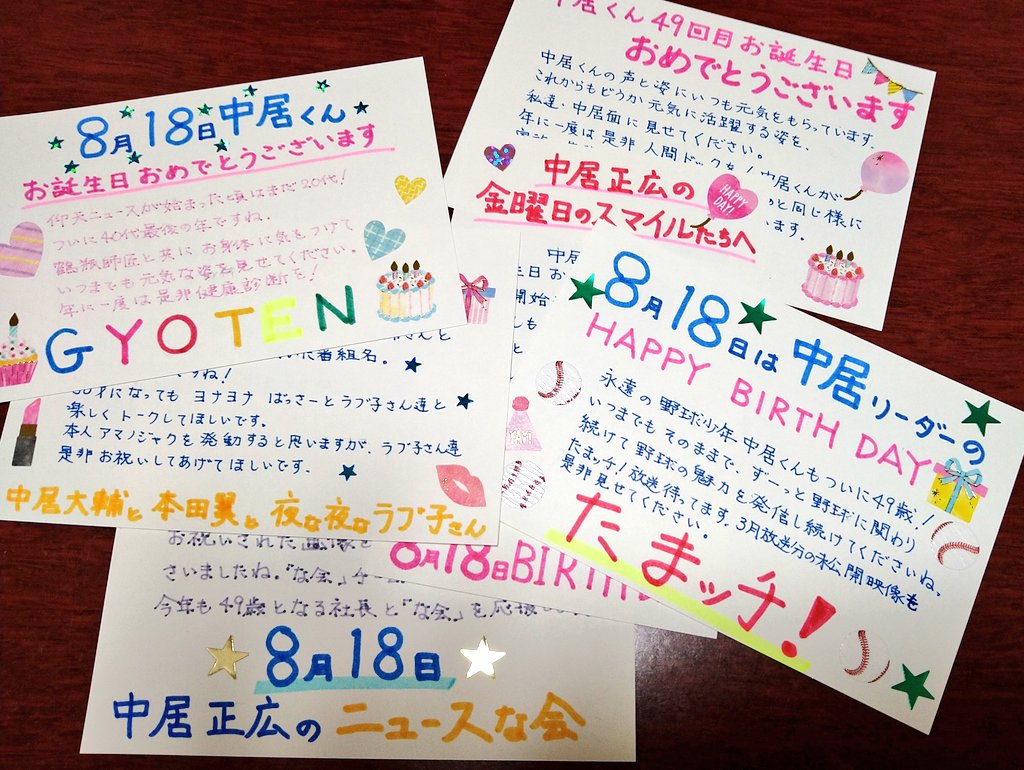 8月18日中居くん
お誕生日おめでとうございます
仰天ニュースが始まった頃はまだ20代!
ついに40代最後の年ですね。
鶴瓶師匠と共にお身体に気をつけて
いつまでも元気な姿を見せてください。
年に一度は是非健康診断を!
GYOTEN
中居くん49回目お誕生日
おめでとうございます
中居くんの声と姿にいつも元気をもらっています。
これからもどうか元気に活躍する姿を、
私達・中居面に見せてください。
年に一度は是非人間ドックを!中居くんが
と同じ様に
ます。
中居正広の
金曜日のスマイルたちへ
HAPPY DAY!
中居
生日お
開始
も
と
さんと
た番組名。
ね!
になっても ヨナヨナ ばっさーとラブ子さん達と
楽しくトークしてほしいです。
本人アマノジャクを発動すると思いますが、ラブ子さん達
是非お祝いしてあげてほしいです。
中居大輔と本田翼と夜な夜なラブ子さん
8月18日は中居リーダーの
HAPPY BIRTH DAY
永遠の野球少年 中居くんもついに49歳!
いつまでもそのままで、ずーっと野球に関わり
続けて野球の魅力を発信し続けてくださいね。
たまッチ!放送待ってます。3月放送分の未公開映像も
是非見せてください。
たまッチ!
YAY!
8月18日BIRTH
お祝いされた画像と
さいましたね。『な会』チーム
今年も49歳となる社長と『な会』を応援
8月18日
中居正広のニュースな会